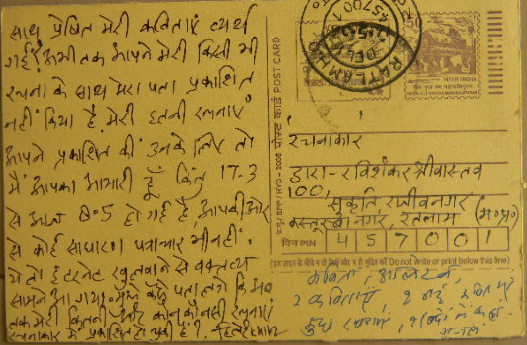 साथ प्रेषित मेरी कविताएं व्यर्थ
गईं। अभी तक आपने मेरी किसी भी
रचना के साथ मेरा पता प्रकाशित
नहीं किया है. मेरी इतनी रचनाएं
आपने प्रकाशित कीं उनके लिए तो
मैं आपका आभारी हूँ किंतु 17.3
से आज 8.5 हो गई है, आपकी ओर
से कोई साधारण पत्राचार भी नहीं.
ये तो इंटरनेट खुलवाने से वक्तव्य
सामने आ गया. मुझे कैसे पता लगे कि अब
तक मेरी कितनी और कौन कौन सी रचनाएं
रचनाकार में प्रकाशित हो चुकी हैं.
पोस्ट कार्ड POST CARD
RATLAM
भारत INDIA
रचनाकार
द्वारा - रविशंकर श्रीवास्तव
100,
सुकृति राजीवनगर
कस्तूरबा नगर, रतलाम (म०प्र०)
पिन PIN 457001
(इस लाइन के नीचे न लिखें और न ही मुद्रित करें Do not write or print below this line)
कविता,
2 कविताएं